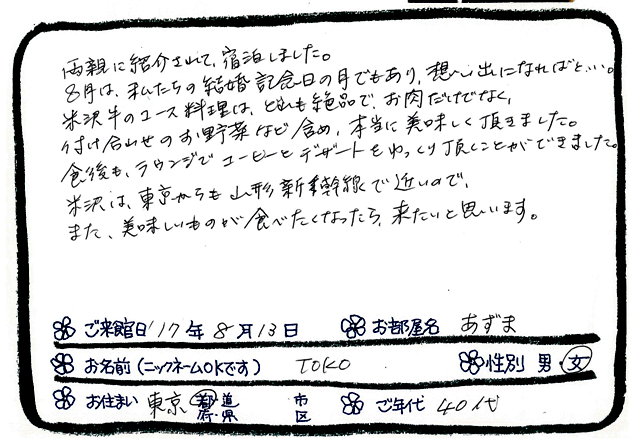 両親に紹介されて、宿泊しました。
8月は、私たちの結婚記念日の月でもあり、想い出になればと・・・。
米沢牛のコース料理は、どれも絶品で、お肉だけでなく、
付け合わせのお野菜など含め、本当に美味しく頂きました。
食後も、ラウンジでコーヒーとデザートをゆっくり頂くことができました。
米沢は、東京からも山形新幹線で近いので、
また、美味しいものが食べたくなったら、来たいと思います。
ご来館日 '17年 8月13日 お部屋名 あずま
お名前(ニックネームOKです) TOKO 性別 男・女
お住まい 東京 都道府県 市区 ご年代 40代